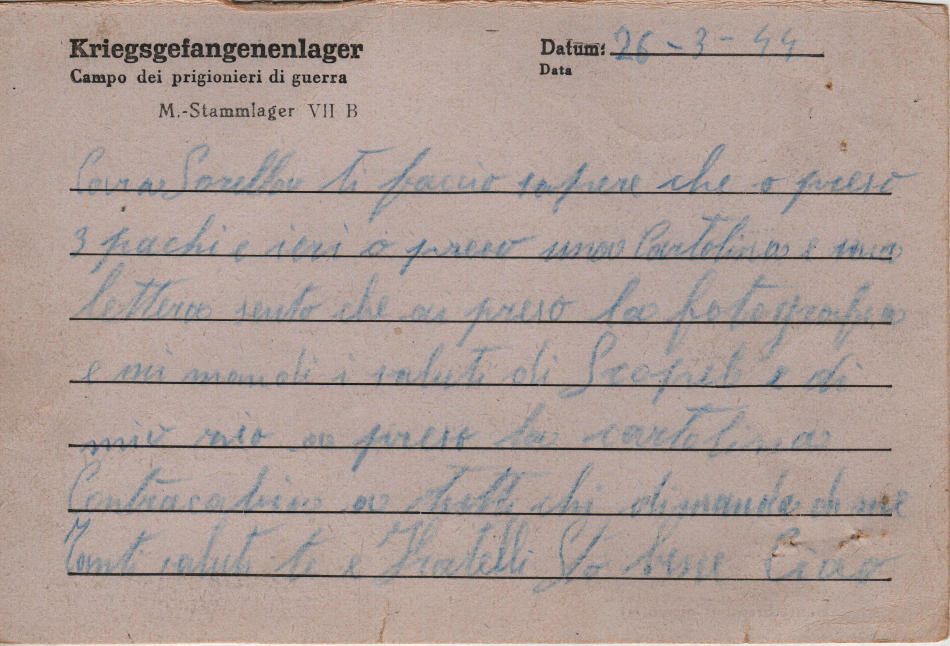 Kriegsgefangenenlager
Campo dei prigionieri di guerra
M.-Stammlager VII B
Datum: 26-3-44
Data
Cara Sorella ti faccio sapere che o preso
3 pachi e ieri o preso una Cartolina e una
lettera sento che a preso la fotografia
e mi mandi i saluti di e di
mio a preso la cartolina
a tutti chi dimanda di me
Tanti saluti te e Fratelli Sto bene Ciao